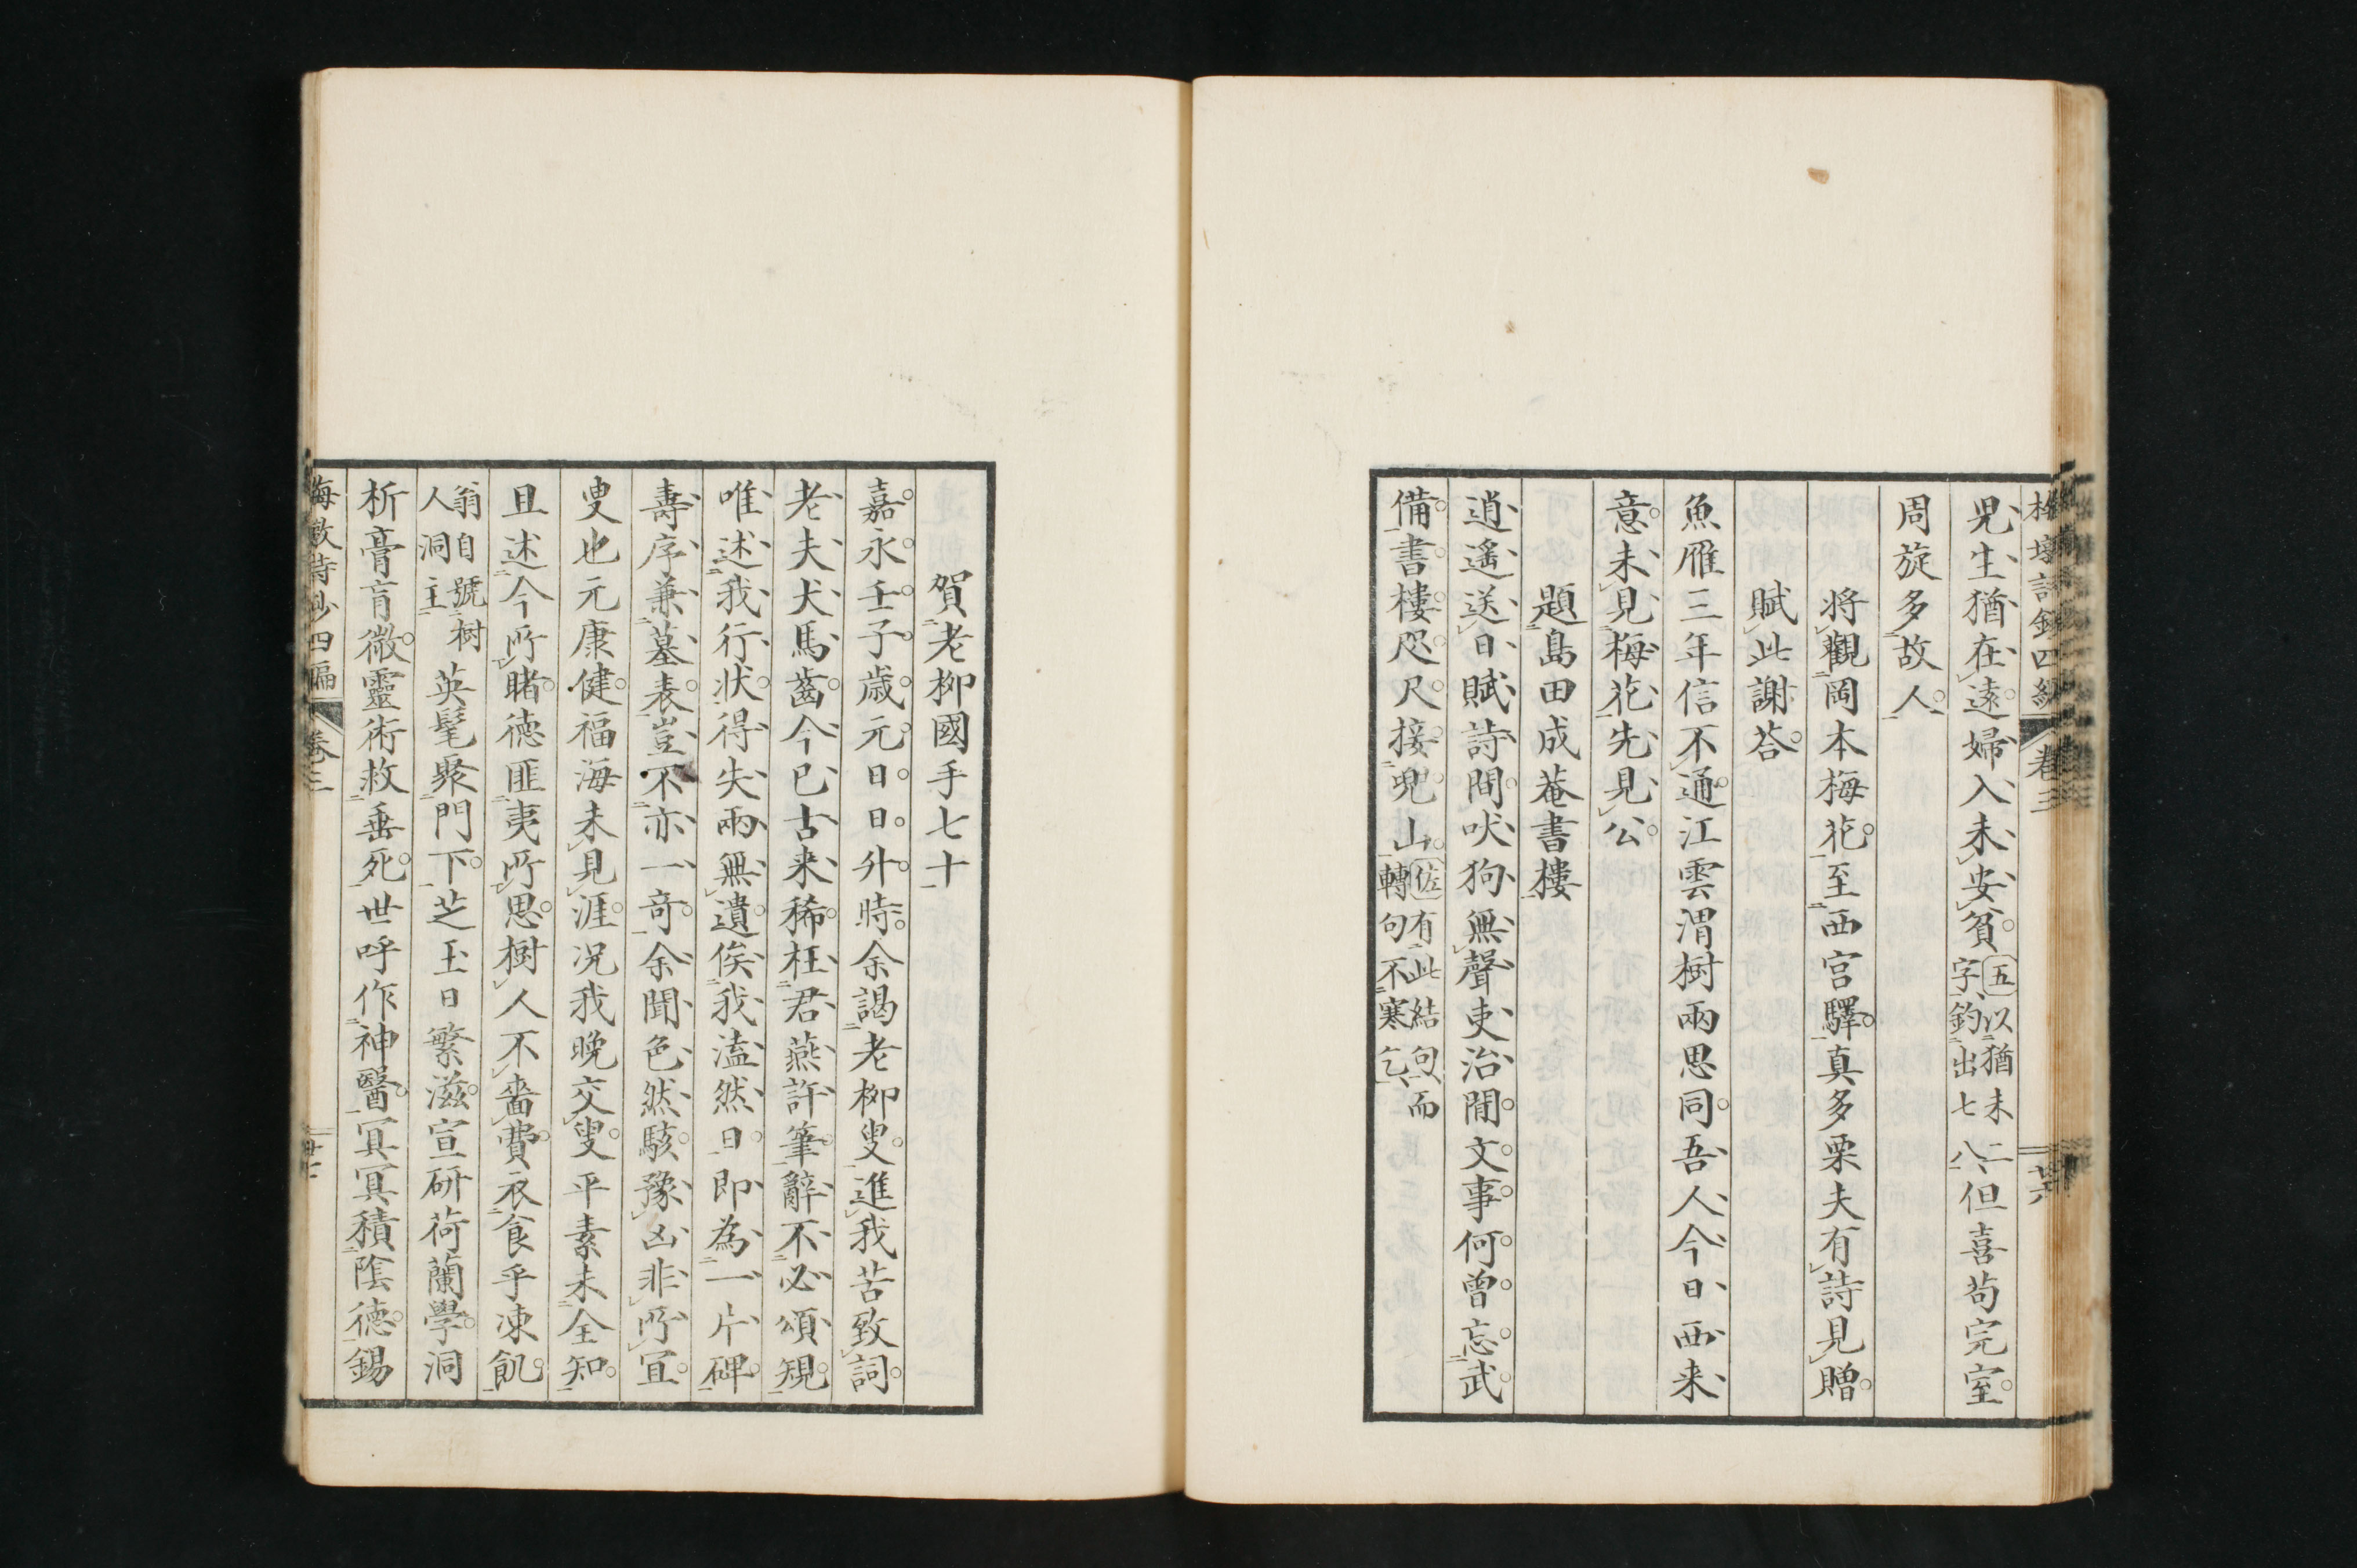 兒生猶在遠婦入未安貧五以猶未二字釣出七八但喜苟完室
周旋多故人
將觀岡本梅花至西宮驛真多栗夫有詩見贈
賦此謝荅
魚雁三年信不通江雲渭樹兩思同吾人今日西来
意未見梅花先見公
題島田成菴書樓
逍遙送日賦詩間吠狗無聲吏治閒文事何曾忘武
備書樓咫尺接兜山佐有此結句而轉句不寒乞
賀老柳國手七十
嘉永壬子歳元日日升時余謁老柳叟進我苦致詞
老夫犬馬齒今已古来稀枉君燕許筆辭不必頌規
唯述我行状得失兩無遺俟我溘然日即為一片碑
壽序兼墓表豈不亦一奇余聞色然駭豫凶非所宜
叟也元康健福海未見涯况我晚交叟平素未全知
且述今所睹德匪夷所思樹人不嗇費衣食乎凍飢
翁自號樹人洞主英髦聚門下芝玉日繁滋宣研荷蘭學洞
析膏肓微靈術救垂死世呼作神醫冥冥積陰德錫
梅墩詩鈔四編 卷三